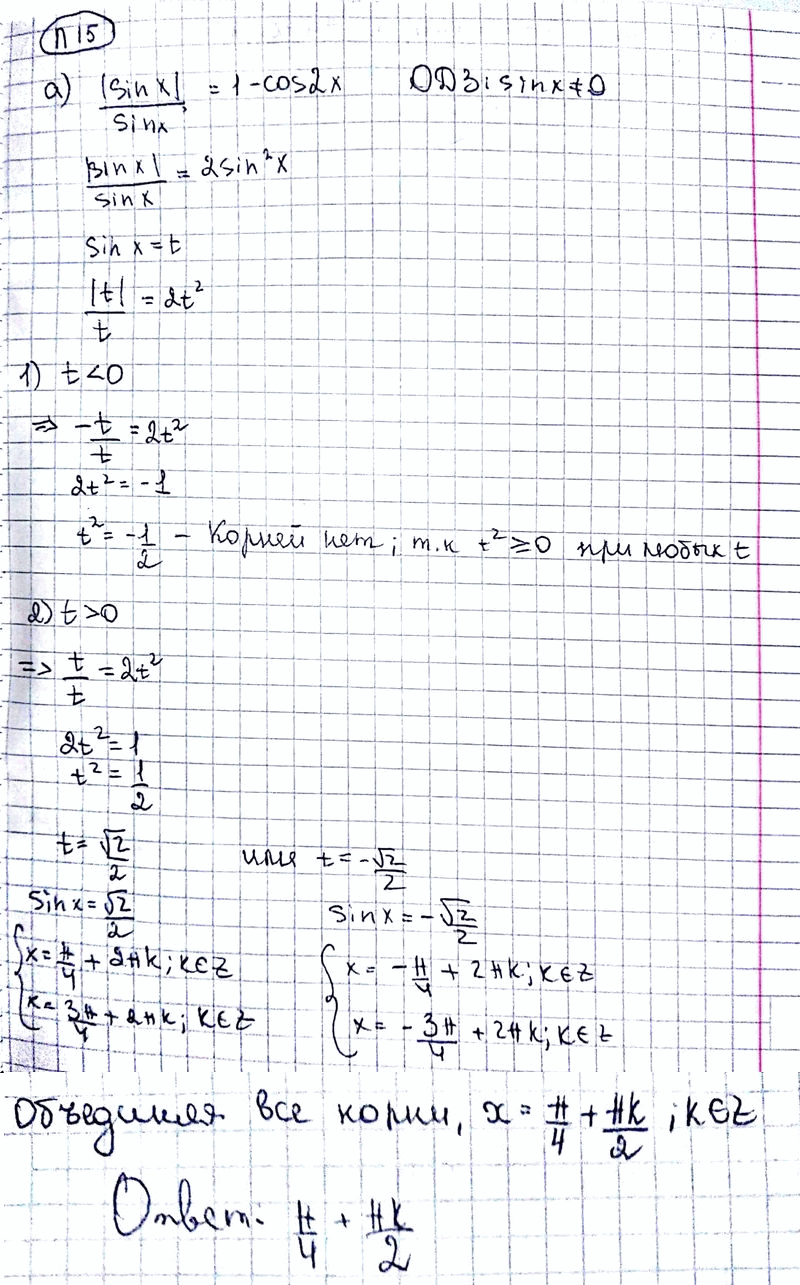 П 15
а) |sin x|/sin x = 1 - cos2x ОДЗ: sin x ≠ 0
|sin x|/sin x = 2sin²x
sin x = t
|t|/t = 2t²
1) t < 0
=> -t/t = 2t²
2t² = -1
t² = -1/2 - корней нет; т.к t² ≥ 0 при любых t
2) t > 0
=> t/t = 2t²
2t² = 1
t² = 1/2
t = √2/2 или t = -√2/2
sin x = √2/2 sin x = -√2/2
x = π/4 + 2πk; k∈Z x = -π/4 + 2πk; k∈Z
x = 3π/4 + 2πk; k∈Z x = -3π/4 + 2πk; k∈Z
Объединяя все корни, x = π/4 + πk/2 ; k∈Z
Ответ: π/4 + πk/2